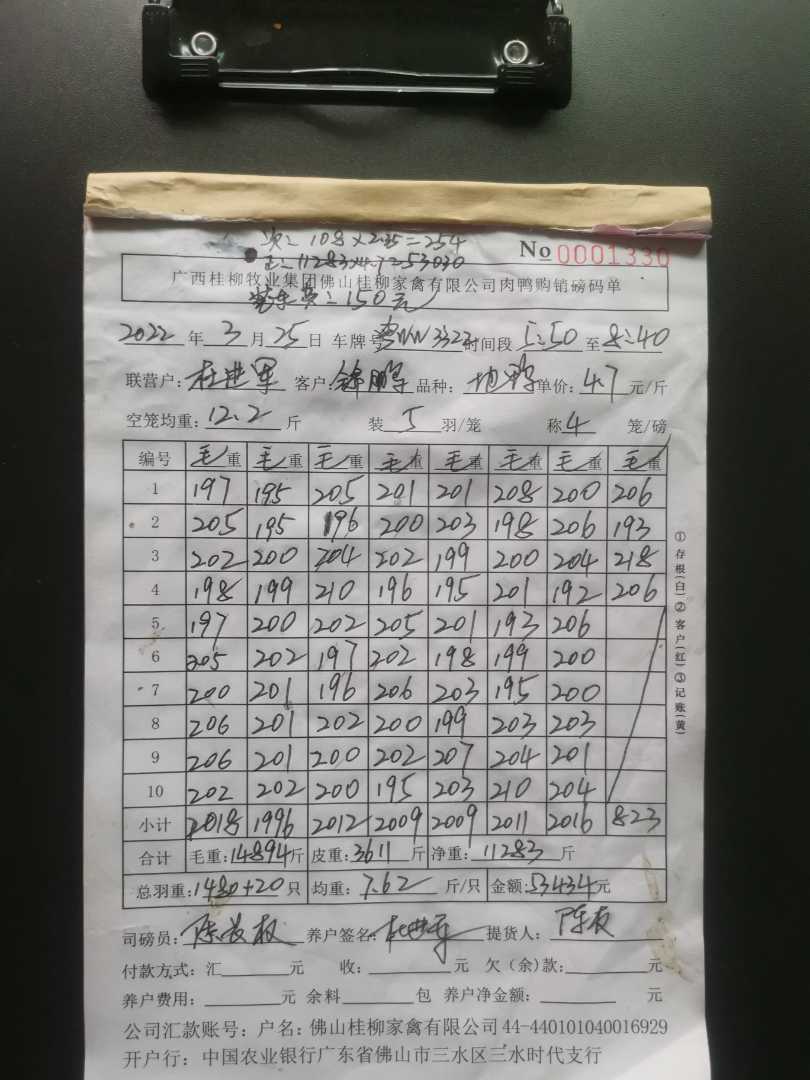 次=108×2.35=254
正=11283×4.7=53030
No 0001330
广西桂柳牧业集团佛山桂柳家禽有限公司肉鸭购销磅码单
费=150元
2022年3月25日 车牌号 3323 时间段 5:50 至 8:40
联营户:杜进军 客户:锦鹏 品种: 单价:4.7元/斤
空笼均重:12.2斤 装5羽/笼 称4笼/磅
编号 毛重 毛重 毛重 毛重 毛重 毛重 毛重 毛重
1 197 195 205 201 201 208 200 206
2 205 195 196 200 203 198 206 193
3 202 200 204 202 199 200 204 218
4 198 199 210 196 195 201 192 206
5 197 200 202 205 201 193 206
6 205 202 197 202 198 199 200
7 200 201 196 206 203 195 200
8 206 201 202 200 199 203 203
9 206 201 200 202 207 204 201
10 202 202 200 195 203 210 204
小计 2018 1996 2012 2009 2009 2011 2016 823
合计 毛重:14894斤 皮重:3611斤 净重:11283斤
总羽重:1480+20只 均重:7.62斤/只 金额:53434元
司磅员: 养户签名: 提货人:
付款方式:汇 元 收: 元 欠(余)款: 元
养户费用: 元 余料 包 养户净金额: 元
公司汇款账号:户名:佛山桂柳家禽有限公司44-440101040016929
开户行:中国农业银行广东省佛山市三水区三水时代支行
①存根(白)②客户(红)③记账(黄)